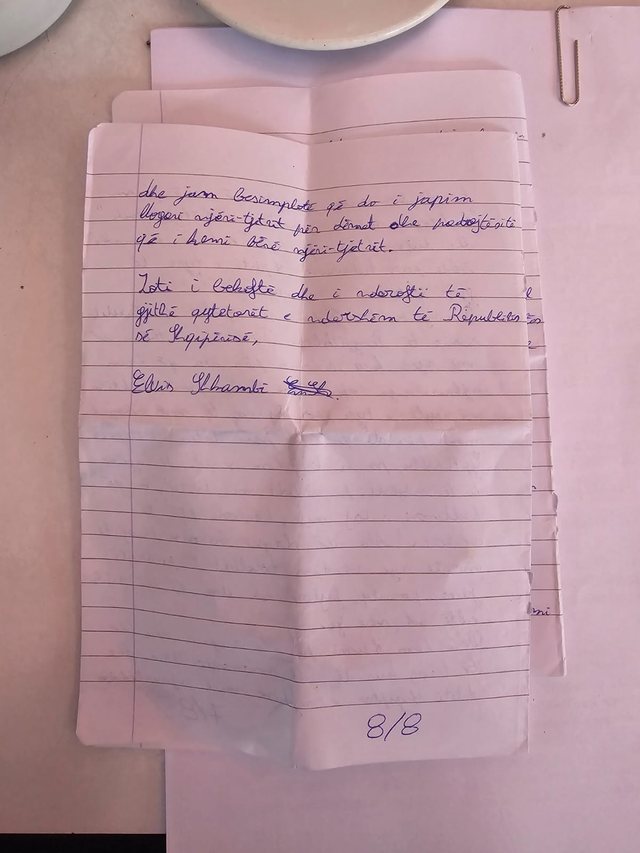 dhe jam besimplotë që do i japim
llogari njëri-tjetrit për dëmet dhe padrejtësitë
që i kemi bërë njëri-tjetrit.
Zoti i bekoftë dhe i ndershtë të
gjithë qytetarët e ndershëm të Republikës
së Shqipërisë,
Elvis Shambi
mi
8/8